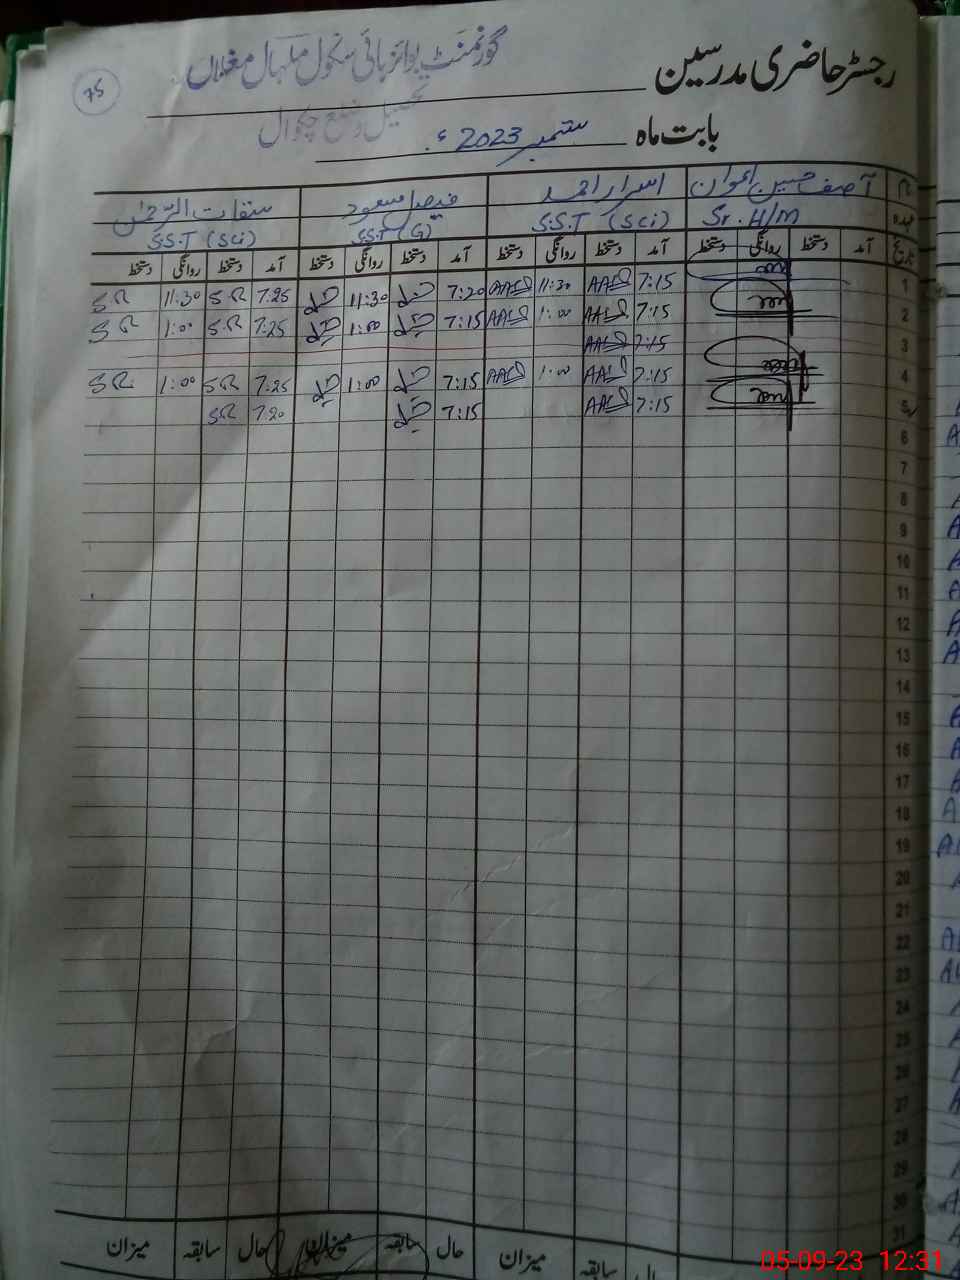 رجسٹر حاضری مدرسین گورنمنٹ بوائز ہائی سکول ملہال مغلاں
تحصیل و ضلع چکوال
75
بابت ماہ ستمبر 2023ء
نام آصف حسین اعوان اسرار احمد فیصل مسعود
عہدہ Sr. H/M S.S.T (Sci) S.S.T (G) S.S.T (Sci)
تاریخ آمد دستخط روانگی دستخط آمد دستخط روانگی دستخط آمد دستخط روانگی دستخط آمد دستخط روانگی دستخط
1 7:15 11:30 7:20 11:30 7:25 SR 11:30 SR
2 7:15 1:00 7:15 1:00 7:25 SR 1:00 SR
3 7:15
4 7:15 1:00 7:15 1:00 7:25 SR 1:00 SR
5 7:15 7:15 7:20 SR
6
7
8
9
10
11
12
13
14
15
16
17
18
19
20
21
22
23
24
25
26
27
28
29
30
31
حال سابقہ میزان حال سابقہ میزان حال سابقہ میزان
05-09-23 12:31